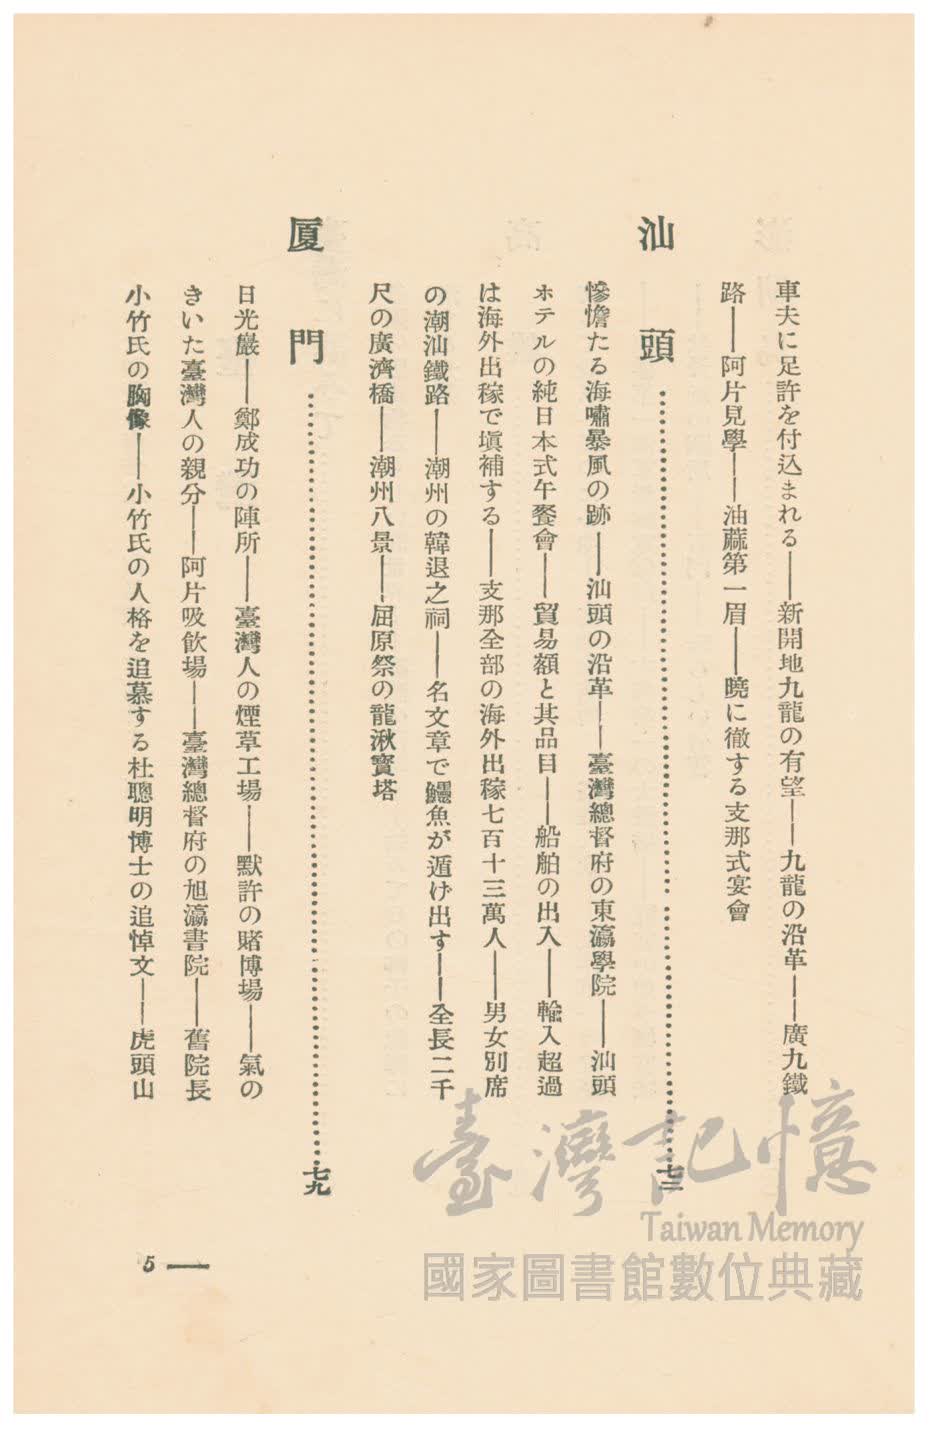 車夫に足許を付込まれる――新開地九龍の有望――九龍の沿革――廣九鐵
路――阿片見學――油蔴第一眉――曉に徹する支那式宴會
汕頭…………七三
慘憺たる海嘯暴風の跡――汕頭の沿革――臺灣總督府の東瀛學院――汕頭
ホテルの純日本式午餐會――貿易額と其品目――船舶の出入――輸入超過
は海外出稼で塡補する――支那全部の海外出稼七百十三萬人――男女別席
の潮汕鐵路――潮州の韓退之祠――名文章で鱷魚が遁げ出す――全長二千
尺の廣濟橋――潮州八景――屈原祭の龍湫寳塔
厦門…………七九
日光巖――鄭成功の陣所――臺灣人の煙草工場――默許の賭博場――氣の
きいた臺灣人の親分――阿片吸飮場――臺灣總督府の旭瀛書院――舊院長
小竹氏の胸像――小竹氏の人格を追慕する杜聰明博士の追悼文――虎頭山
5 ―
臺灣記憶
Taiwan Memory
國家圖書館數位典藏